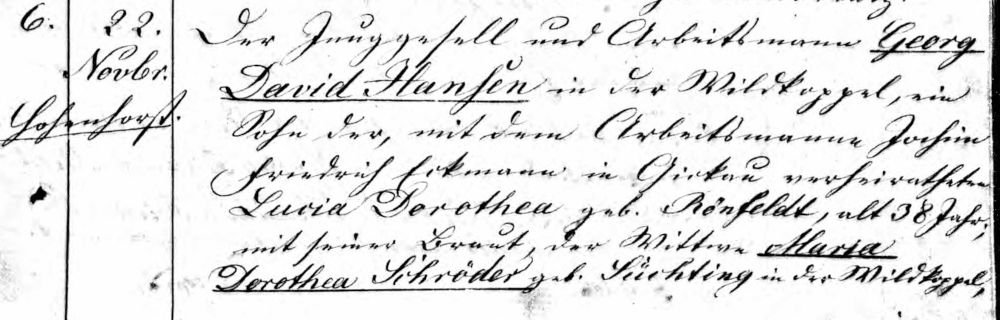 6. 22. Der Junggesell und Arbeitsmann Georg
Novbr. David Hansen in der Wildkoppel, ein
Hohenhorst. Sohn der, mit dem Arbeitsmanne Jochim
Friedrich Eckmann in Girkau verheiratheten
Lucia Dorothea geb. Rönfeldt, alt 38 Jahr;
mit seiner Braut, der Wittwe Maria
Dorothea Schröder geb. Süchting in der Wildkoppel,